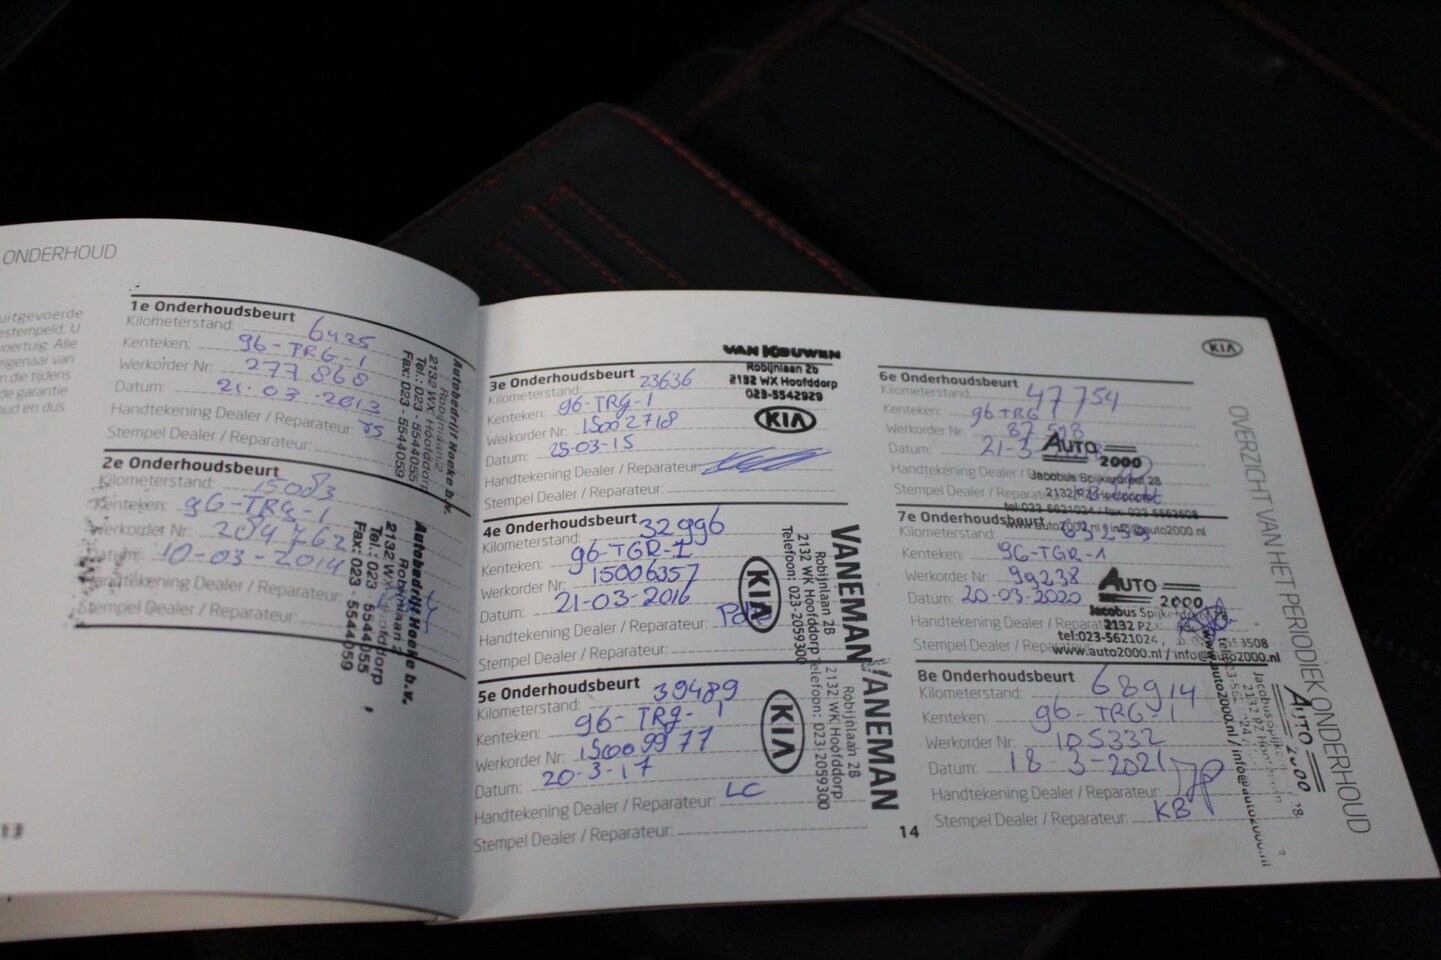 ONDERHOUD
uitgevoerde
estempeld. U
voertuig. Alle
eigenaar van
n die tijdens
de garantie
oud en dus
1e Onderhoudsbeurt
Kilometerstand: 6425
Kenteken: 96-TRG-1
Werkorder Nr: 277868
Datum: 21-03-2013
Handtekening Dealer / Reparateur:
Stempel Dealer / Reparateur:
Autobedrijf Hoeke b.v.
Robijnlaan 2
2132 WX Hoofddorp
Tel.: 023 - 5544055
Fax: 023 - 5544059
2e Onderhoudsbeurt
Kilometerstand: 15083
Kenteken: 96-TRG-1
Werkorder Nr: 284762
Datum: 10-03-2014
Handtekening Dealer / Reparateur:
Stempel Dealer / Reparateur:
Autobedrijf Hoeke b.v.
Robijnlaan 2
2132 WX Hoofddorp
Tel.: 023 - 5544055
Fax: 023 - 5544059
13
3e Onderhoudsbeurt
Kilometerstand: 23636
Kenteken: 96-TRG-1
Werkorder Nr: 15002718
Datum: 25-03-15
Handtekening Dealer / Reparateur:
Stempel Dealer / Reparateur:
VAN KOUWEN
Robijnlaan 2b
2132 WX Hoofddorp
023-5542929
KIA
4e Onderhoudsbeurt
Kilometerstand: 32996
Kenteken: 96-TGR-1
Werkorder Nr: 15006357
Datum: 21-03-2016
Handtekening Dealer / Reparateur:
Stempel Dealer / Reparateur:
KIA
VANEMAN
Robijnlaan 2B
2132 WK Hoofddorp
Telefoon: 023-2059300
5e Onderhoudsbeurt
Kilometerstand: 39489
Kenteken: 96-TRG-1
Werkorder Nr: 15009977
Datum: 20-3-17
Handtekening Dealer / Reparateur: LC
Stempel Dealer / Reparateur:
KIA
VANEMAN
Robijnlaan 2B
2132 WK Hoofddorp
Telefoon: 023-2059300
14
KIA
6e Onderhoudsbeurt
Kilometerstand: 47754
Kenteken: 96 TRG
Werkorder Nr: 87518
Datum: 21-3
Handtekening Dealer /
Stempel Dealer / Reparateur:
AUTO 2000
Jacobus Spijkerdreef 28
2132 PZ Hoofddorp
tel:023-5621024 / fax: 023-5563508
www.auto2000.nl / info@auto2000.nl
7e Onderhoudsbeurt
Kilometerstand:
Kenteken: 96-TGR-1
Werkorder Nr: 99238
Datum: 20-03-2020
Handtekening Dealer / Reparateur
Stempel Dealer / Reparateur
AUTO 2000
Jacobus Spijkerdreef
2132 PZ
tel:023-5621024
www.auto2000.nl / info@auto2000.nl
8e Onderhoudsbeurt
Kilometerstand: 68914
Kenteken: 96-TRG-1
Werkorder Nr: 105332
Datum: 18-3-2021
Handtekening Dealer / Reparateur:
Stempel Dealer / Reparateur: KB
AUTO 2000
www.auto2000.nl / info@auto2000.nl
OVERZICHT VAN HET PERIODIEK ONDERHOUD